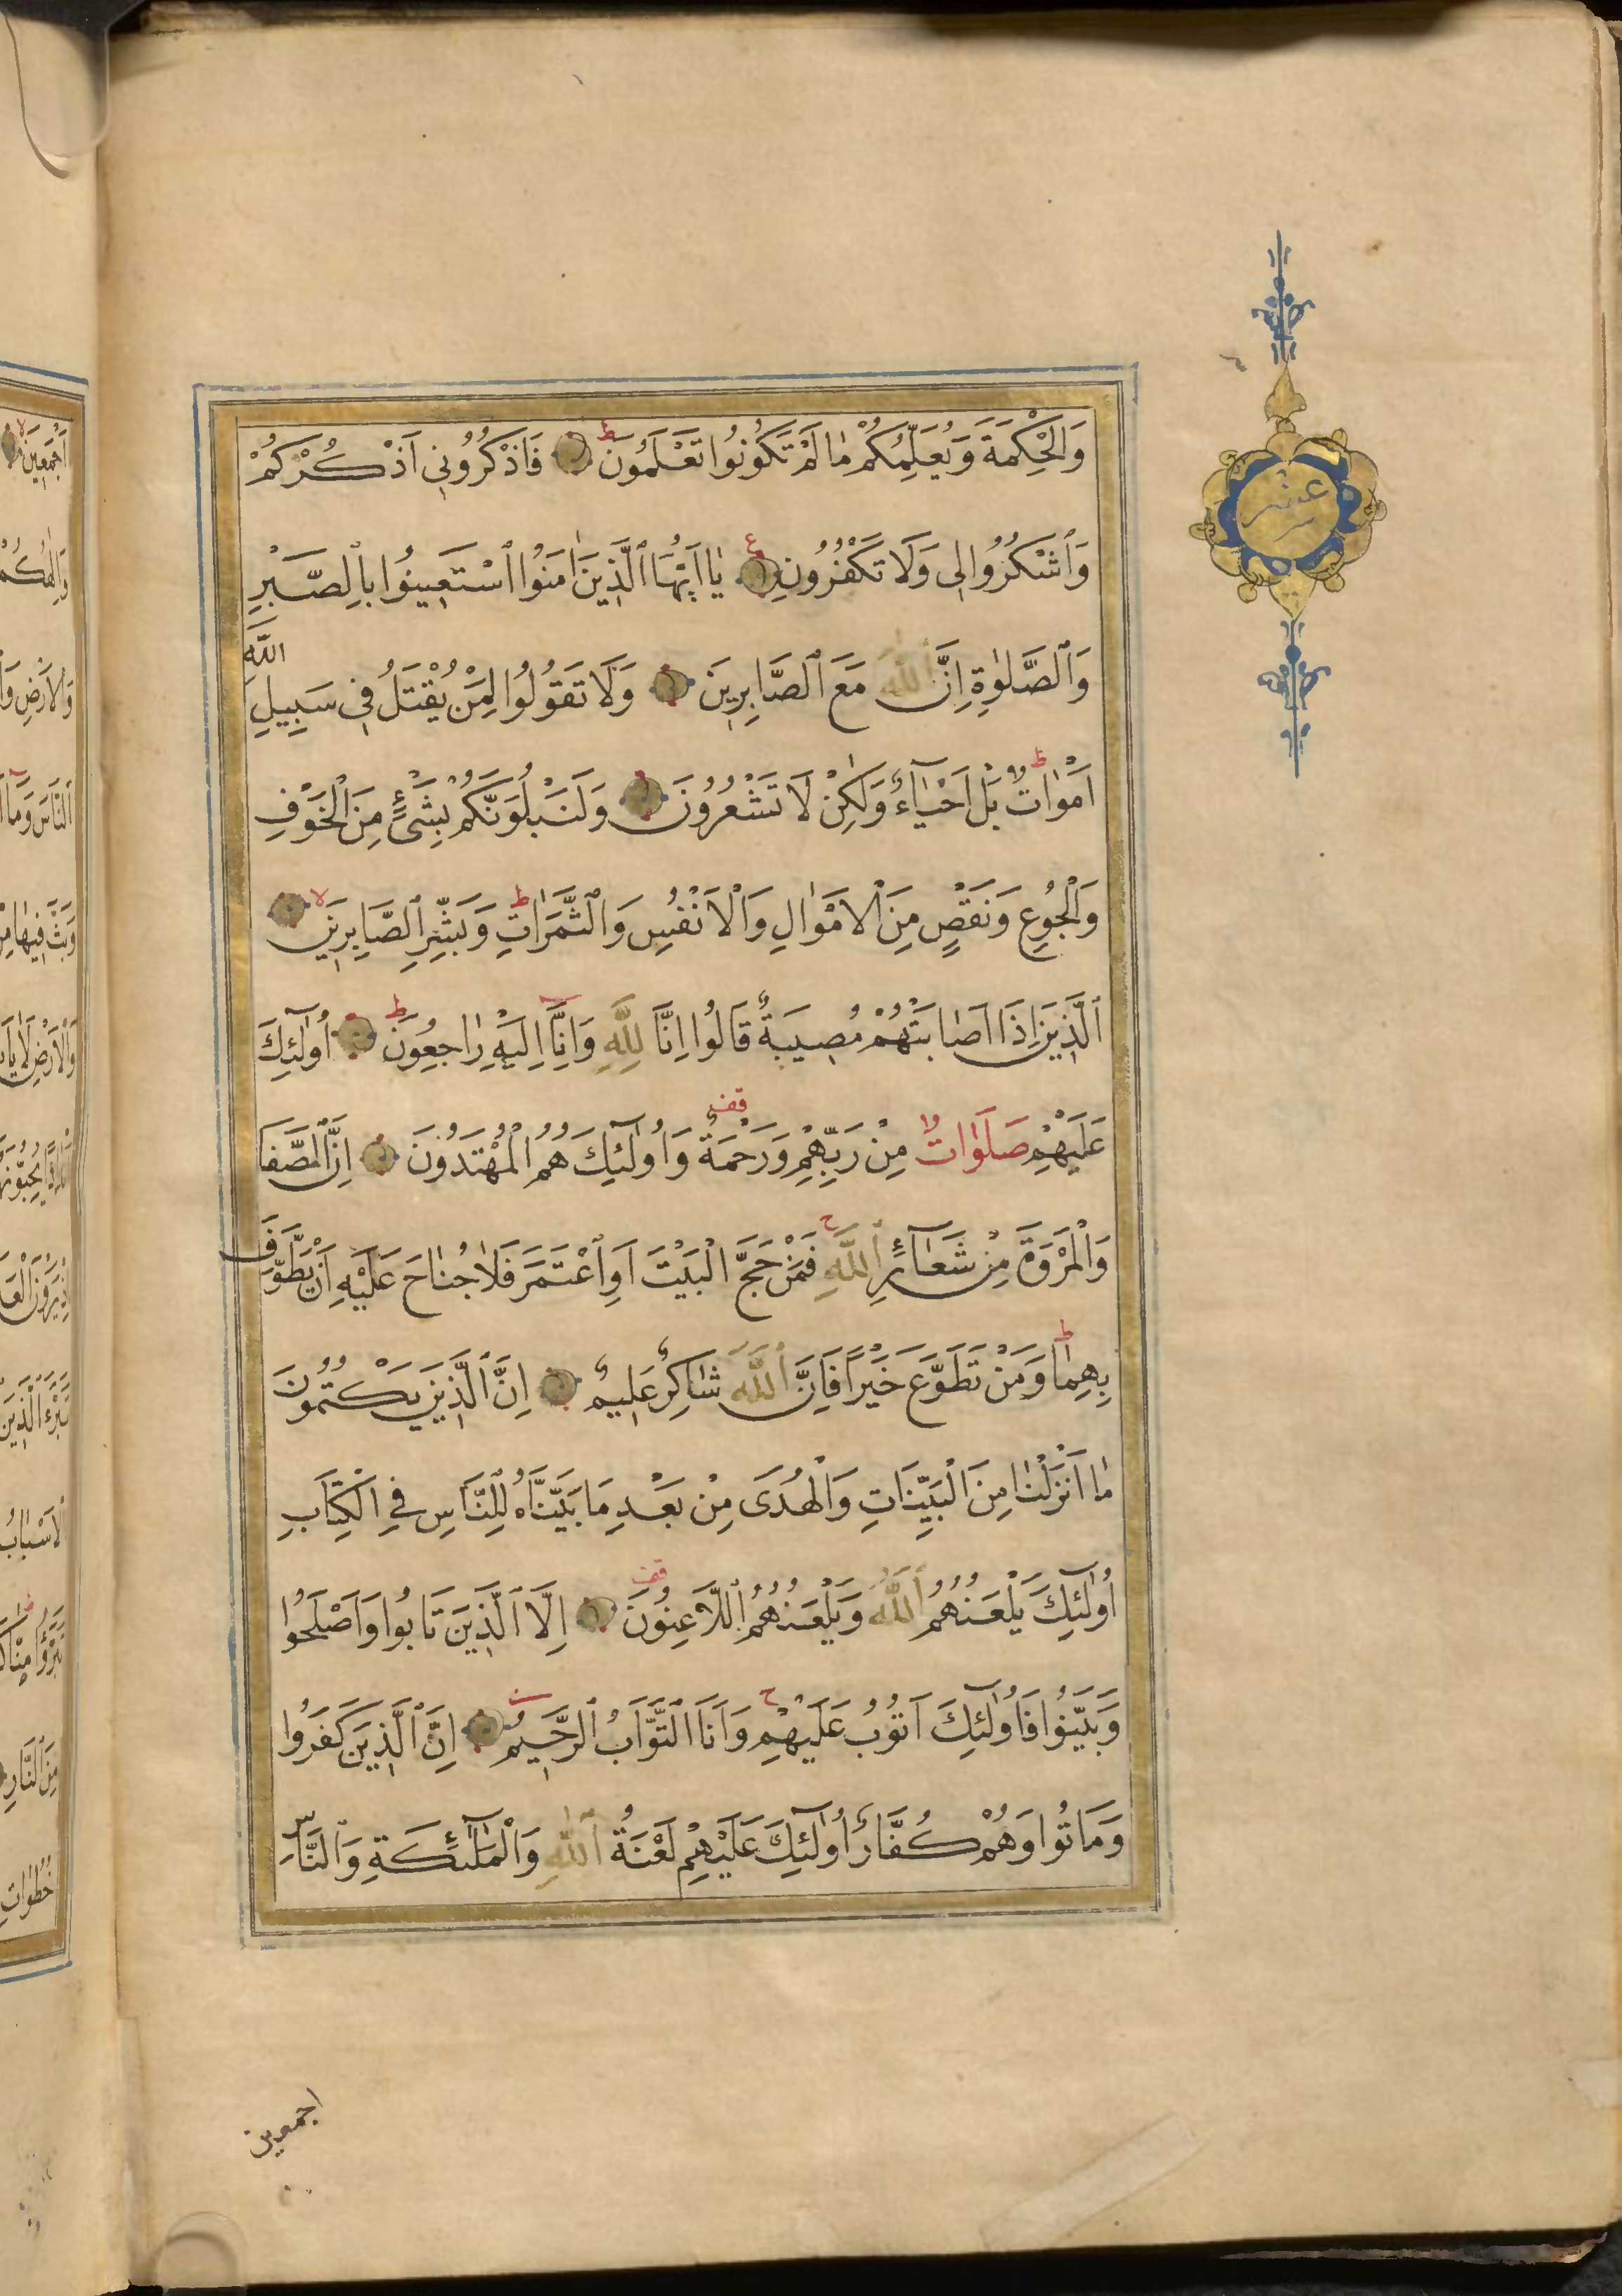 وَالْحِكْمَةَ وَيُعَلِّمُكُمْ مٰا لَمْ تَكُونُوا تَعْلَمُونَ ط فَاذْكُرُونِي اَذْكُرْكُمْ
وَٱشْكُرُوا لِى وَلَا تَكْفُرُونِ ع يٰا اَيُّهَا ٱلَّذِينَ اٰمَنُوا ٱسْتَعِينُوا بِالصَّبْرِ
وَٱلصَّلٰوةِ اِنَّ ٱللّٰهَ مَعَ ٱلصَّابِرِينَ وَلَا تَقُولُوا لِمَنْ يُقْتَلُ فِى سَبِيلِ اللّٰهِ
اَمْوٰاتٌ ط بَلْ اَحْيٰآءٌ وَلٰكِنْ لَا تَشْعُرُونَ وَلَنَبْلُوَنَّكُمْ بِشَىْءٍ مِنَ الْخَوْفِ
وَالْجُوعِ وَنَقْصٍ مِنَ الْاَمْوٰالِ وَالْاَنْفُسِ وَالثَّمَرٰاتِ ط وَبَشِّرِ ٱلصَّابِرِينَ لا
ٱلَّذِينَ اِذَا اَصٰابَتْهُمْ مُصِيبَةٌ قَالُوا اِنَّا لِلّٰهِ وَاِنَّا اِلَيْهِ رٰاجِعُونَ ط اُولٰٓئِكَ
عَلَيْهِمْ صَلَوٰاتٌ مِنْ رَبِّهِمْ وَرَحْمَةٌ قف وَاُولٰٓئِكَ هُمُ الْمُهْتَدُونَ اِنَّ ٱلصَّفَا
وَالْمَرْوَةَ مِنْ شَعٰآئِرِ ٱللّٰهِ ج فَمَنْ حَجَّ الْبَيْتَ اَوِ ٱعْتَمَرَ فَلٰا جُنٰاحَ عَلَيْهِ اَنْ يَطَّوَّفَ
بِهِمٰا ط وَمَنْ تَطَوَّعَ خَيْرًا فَاِنَّ ٱللّٰهَ شٰاكِرٌ عَلِيمٌ اِنَّ ٱلَّذِينَ يَكْتُمُونَ
مٰا اَنْزَلْنٰا مِنَ الْبَيِّنَاتِ وَالْهُدَى مِنْ بَعْدِ مَا بَيَّنَّاهُ لِلنَّاسِ فِي الْكِتَابِ
اُولٰٓئِكَ يَلْعَنُهُمُ ٱللّٰهُ وَيَلْعَنُهُمُ ٱللَّاعِنُونَ قف اِلَّا ٱلَّذِينَ تَابُوا وَاَصْلَحُوا
وَبَيَّنُوا فَاُولٰٓئِكَ اَتُوبُ عَلَيْهِمْ ج وَاَنَا التَّوَّابُ ٱلرَّحِيمُ اِنَّ ٱلَّذِينَ كَفَرُوا
وَمَاتُوا وَهُمْ كُفَّارٌ اُولٰٓئِكَ عَلَيْهِمْ لَعْنَةُ ٱللّٰهِ وَالْمَلٰآئِكَةِ وَٱلنَّاسِ
اجمعين
عشر